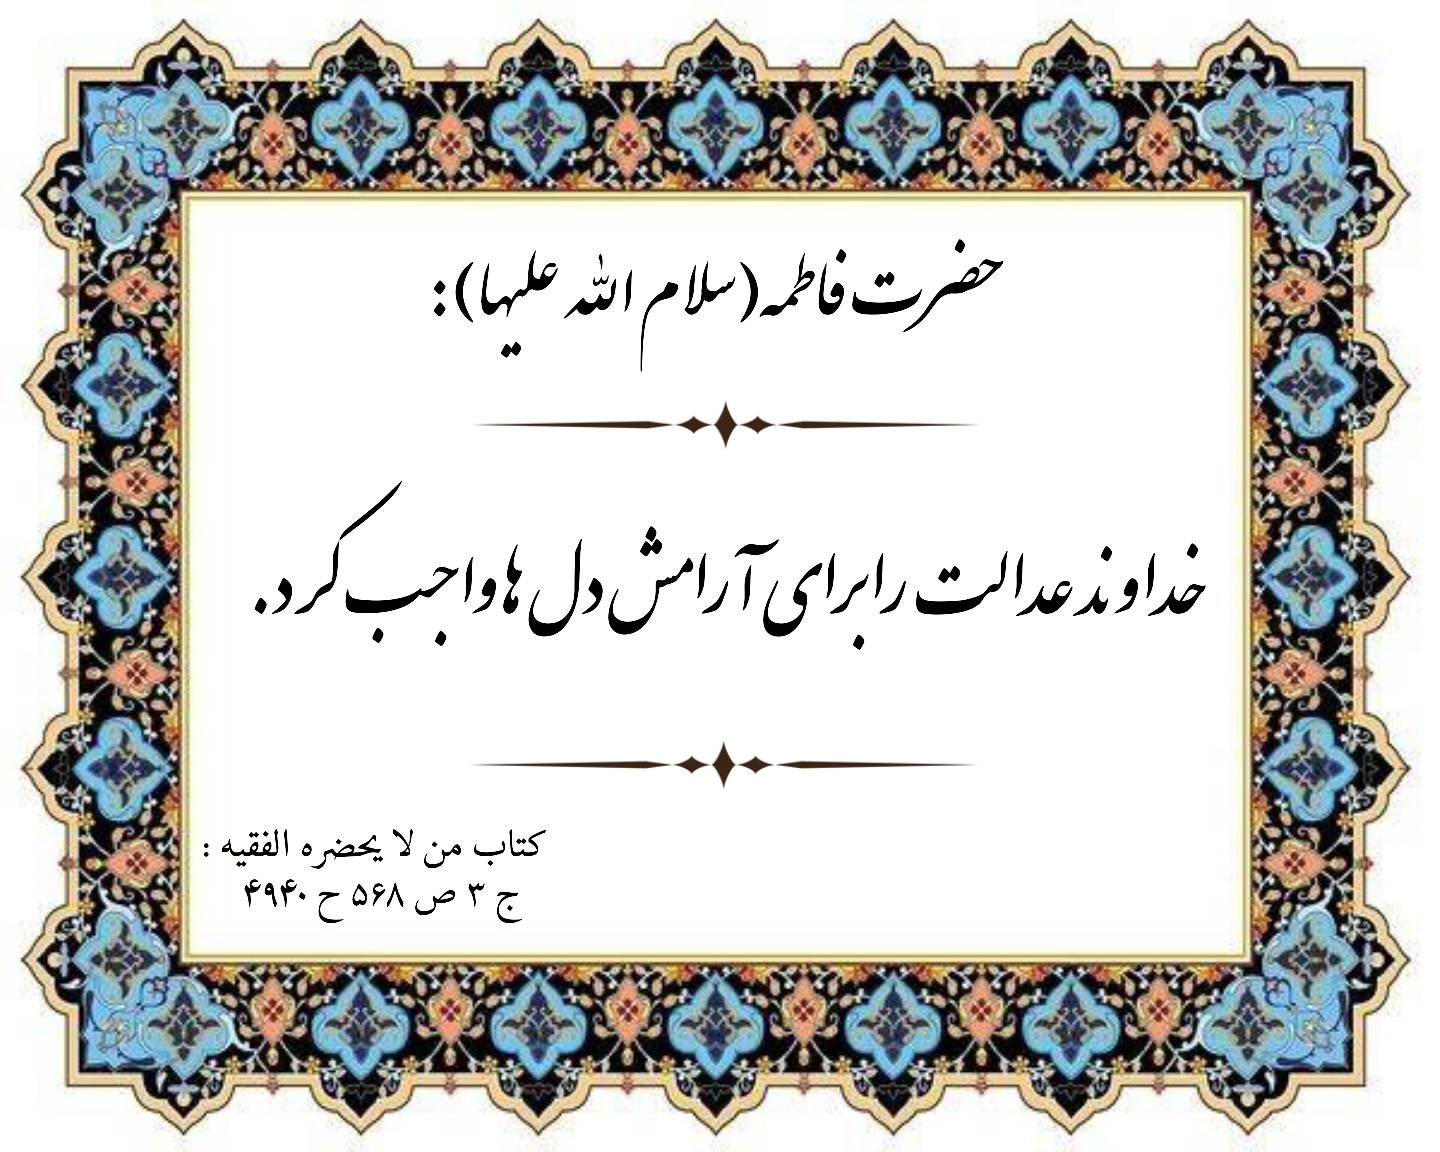 حضرت فاطمه(سلام الله علیها):
خداوند عدالت را برای آرامش دل ها واجب کرد.
کتاب من لا یحضره الفقیه :
ج ۳ ص ۵۶۸ ح ۴۹۴۰